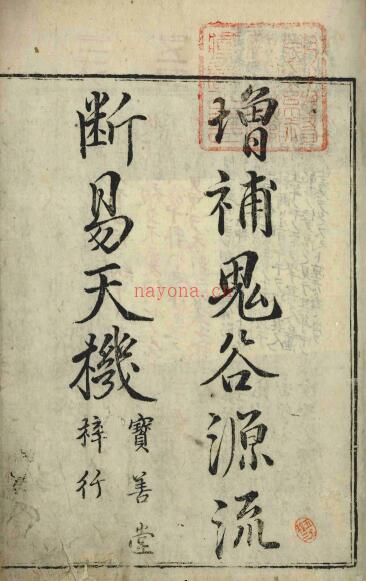 增補鬼谷源流
断易天機
寳善堂
梓行
nayona.cn